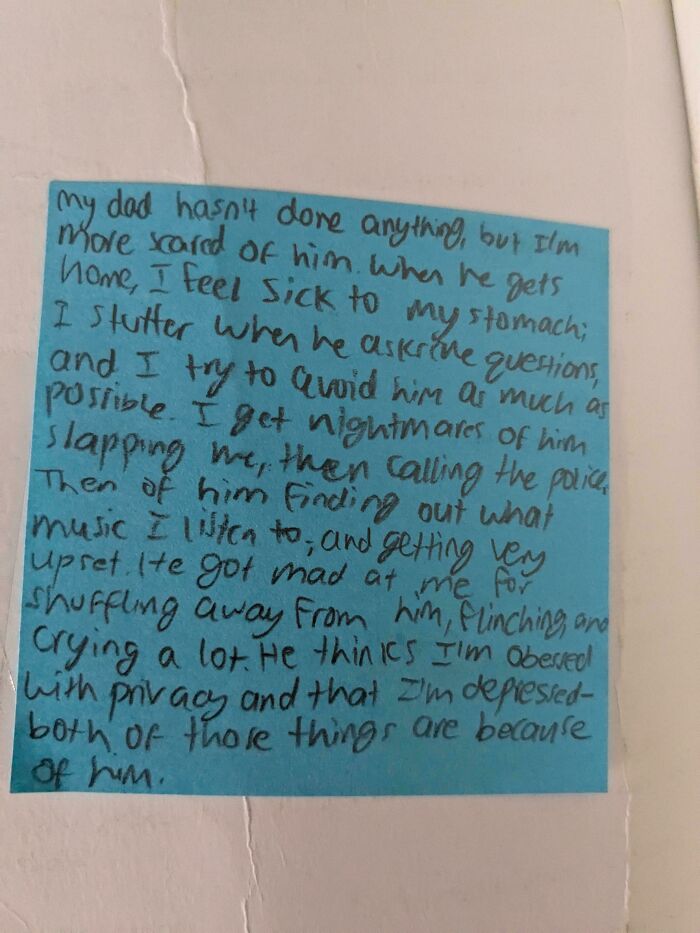 my dad hasn't done anything, but I'm
more scared of him. When he gets
home, I feel sick to my stomach;
I stutter when he asks me questions,
and I try to avoid him as much as
possible. I get nightmares of him
slapping me, then calling the police.
Then of him finding out what
music I listen to, and getting very
upset. He got mad at me for
shuffling away from him, flinching, and
crying a lot. He thinks I'm obessed
with privacy and that I'm depressed-
both of those things are because
of him.